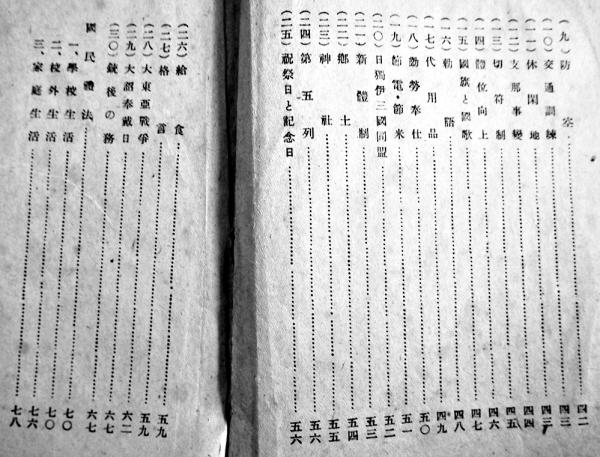 (九)防空……四二
(一〇)交通訓練……四三
(一一)休閑地……四三
(一二)支那事變……四四
(一三)切符制……四五
(一四)體位向上……四六
(一五)國旗と國歌……四七
(一六)勅語……四八
(一七)代用品……四九
(一八)勤勞奉仕……五〇
(一九)節電・節米……五一
(二〇)日獨伊三國同盟……五二
(二一)新體制……五三
(二二)鄕土……五四
(二三)神社……五五
(二四)第五列……五六
(二五)祝祭日と記念日……五六
(二六)給食……五九
(二七)格言……五九
(二八)大東亞戰爭……六二
(二九)大詔奉戴日……六七
(三〇)銃後の務……六七
國民體法……七〇
一、學校生活……七〇
二、校外生活……七六
三、家庭生活……七八